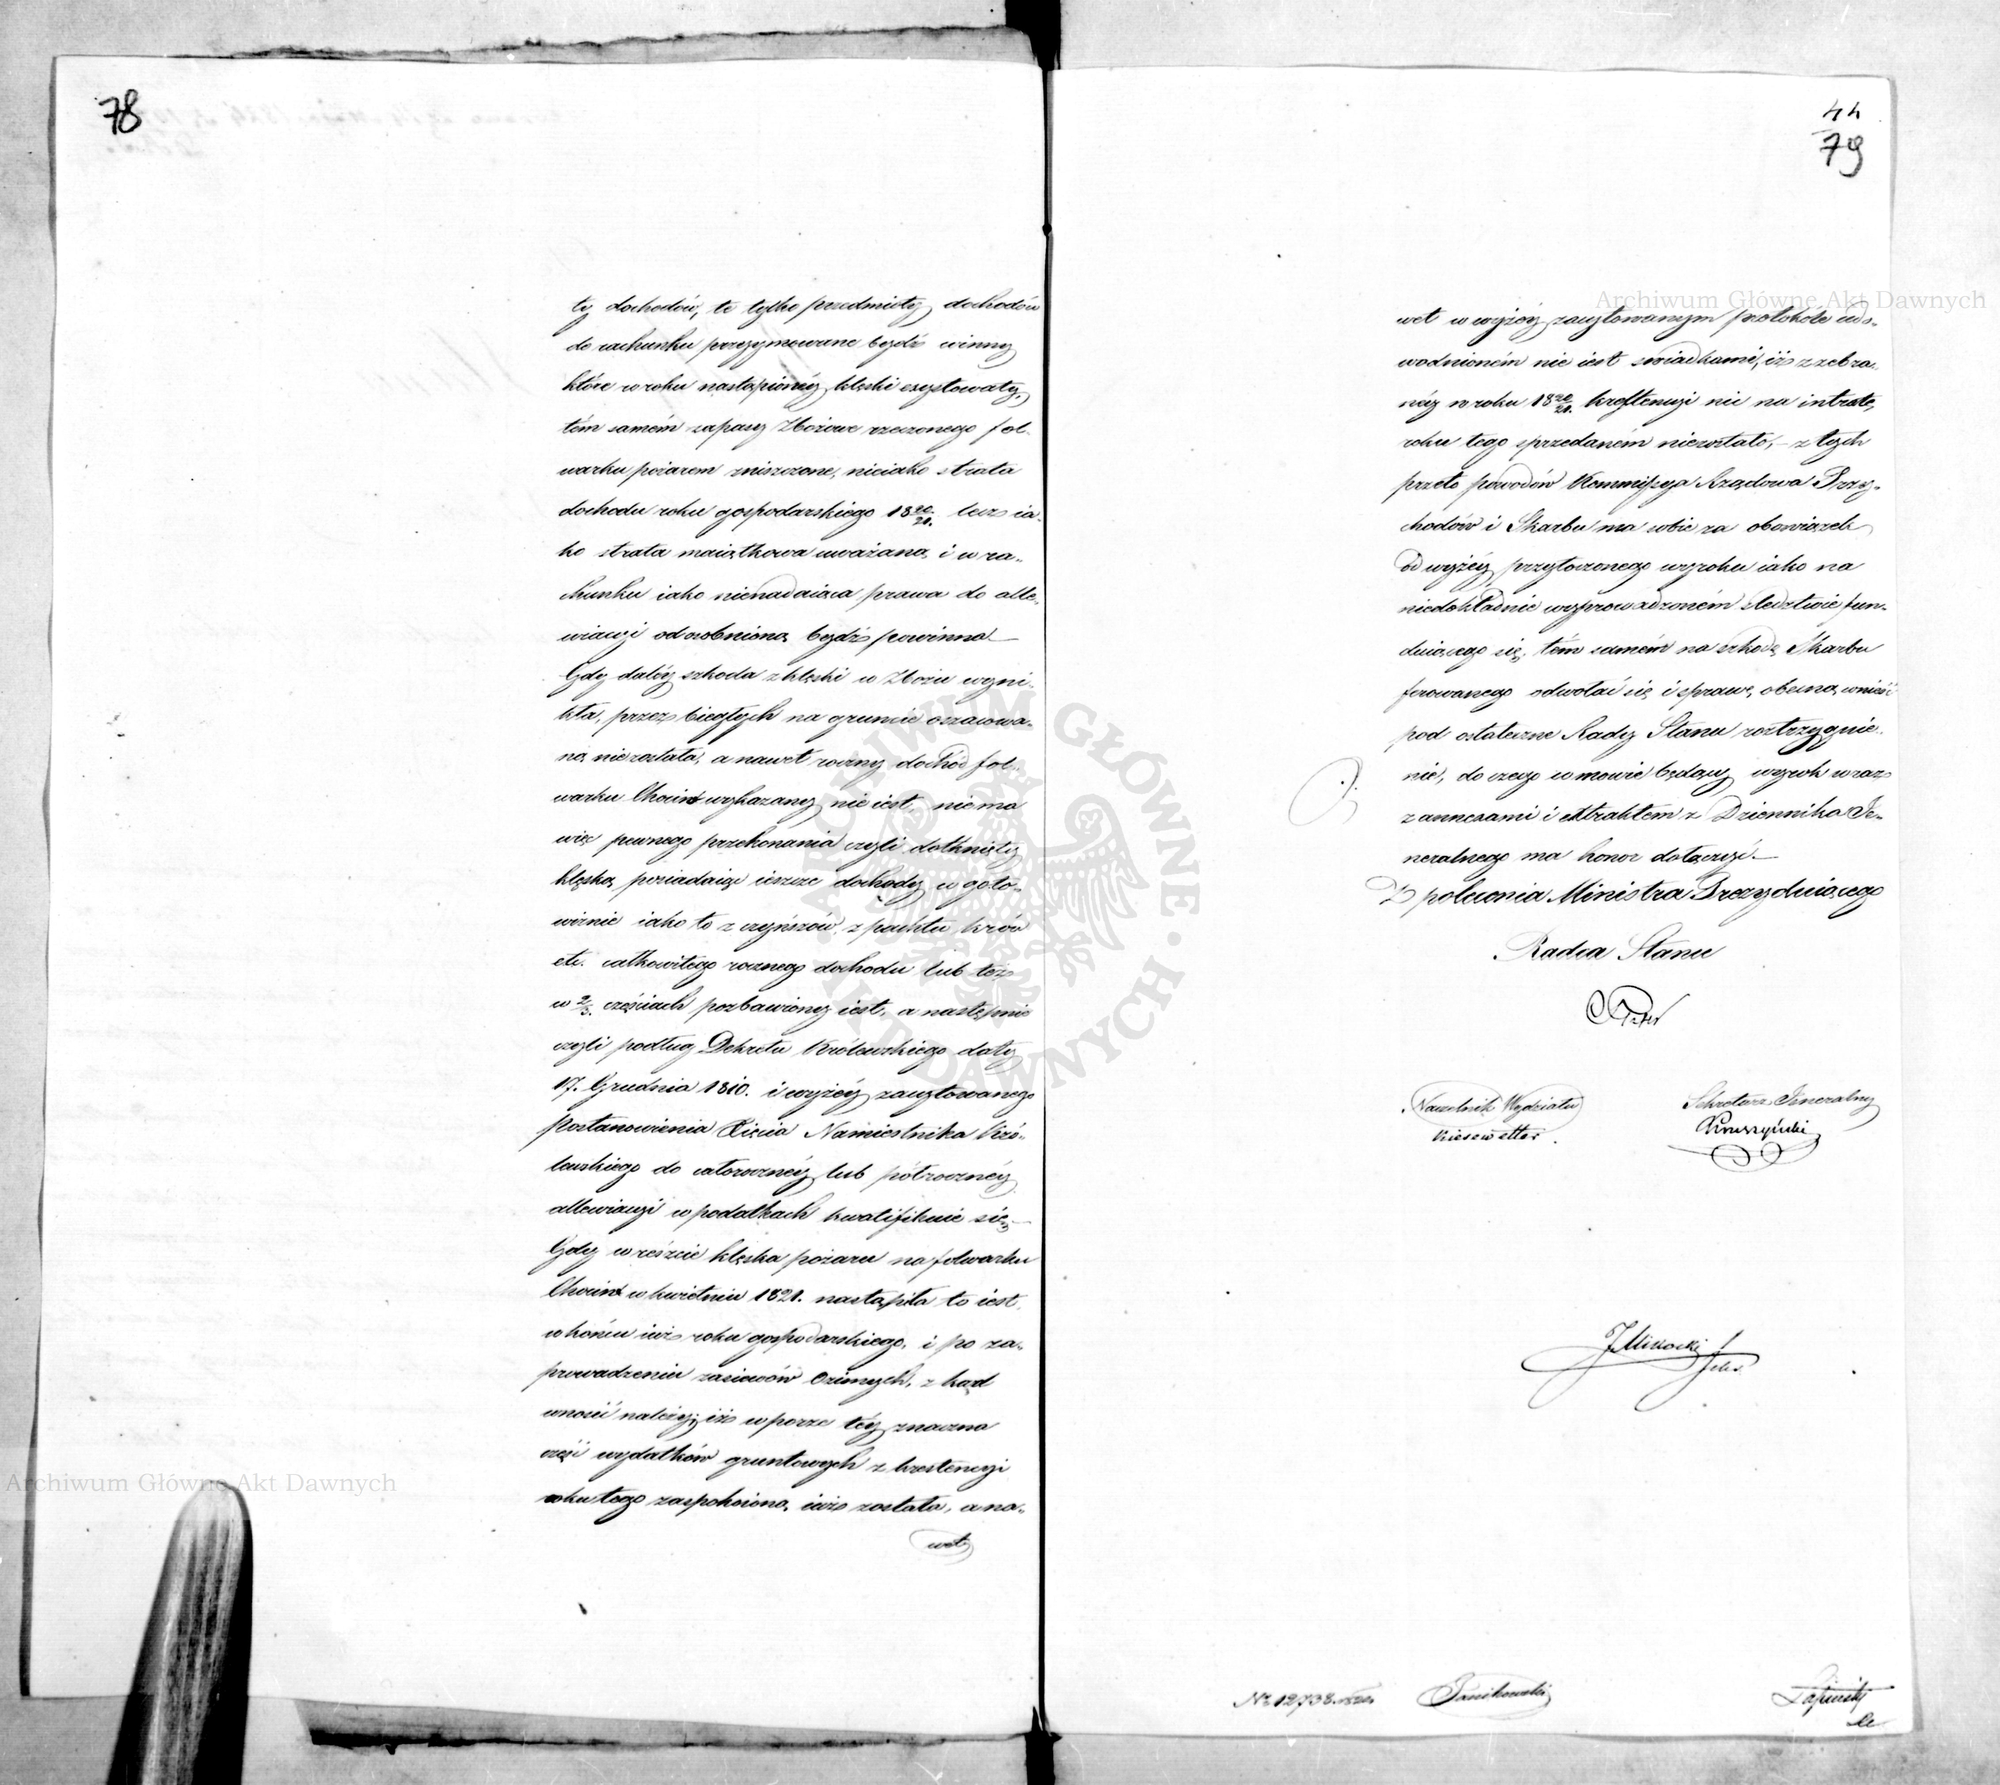 78
ty dochodów, te tylko przedmioty dochodów
do rachunku przyymowane bydź winny
które w roku nastąpionéy klęski exystowały,
tém samém zapasy Zbożowe rzeczonego fol-
warku pożarem zniszczone, nieiako strata
dochodu roku gospodarskiego 18 20/21. lecz ia-
ko strata maiątkowa uważana, i w ra-
chunku iako nienadaiąca prawa do alle-
wiacyi odosobniona bydź powinna —
Gdy daléy szkoda z klęski w Zbożu wyni-
kła, przez biegłych na gruncie oszacowa-
ną niezostała, a nawet roczny dochód fol-
warku wykazany nie iest, niema
więc pewnego przekonania czyli dotknięty
klęską, posiadaiąc ieszcze dochody w goto-
wiźnie iako to z czynszów, z pachtu krów
etc. całkowitego rocznego dochodu lub też
w 2/3. częściach pozbawiony iest, a następnie
czyli podług Dekretu Królewskiego daty
17. Grudnia 1810. i wyżéy zacytowanego
Postanowienia Xięcia Namiestnika Kró-
lewskiego do całorocznéy lub półrocznéy
allewiacyi w podatkach kwalifikuie się —
Gdy wreszcie klęska pożaru na folwarku
w kwietniu 1821. nastąpiła to iest
w końcu iuż roku gospodarskiego, i po za-
prowadzeniu zasiewów Ozimych, zkąd
wnosić należy, iż w porze téy znaczna
część wydatków gruntowych z krestencyi
roku tego zaspokoioną iuż została, a na-
wet
44
79
Archiwum Główne Akt Dawnych
wet w wyżéy zacytowanym protokóle udo-
wodnioném nie iest świadkami, iż z zebra-
néy w roku 18 20/21. krestencyi nic na intratę
roku tego sprzedaném niezostało, — z tych
przeto powodów Kommissya Rządowa Przy-
chodów i Skarbu ma sobie za obowiązek
od wyżéy przytoczonego wyroku iako na
niedokładnie wyprowadzoném śledztwie fun-
duiącego się, tém samém na szkodę Skarbu
ferowanego odwołać się i sprawę obecną wnieść
pod ostateczne Rady Stanu roztrzygnie-
nie, do czego w mowie będący wyrok wraz
z annexami i extraktem z Dziennika Je-
neralnego ma honor dołączyć. —
Z polecenia Ministra Prezyduiącego
Radca Stanu
Naczelnik Wydziału
Kiesewetter.
Sekretarz Jeneralny
Kruszyński
Nr. 12738.
Janikowski
Archiwum Główne Akt Dawnych
ARCHIWUM GŁÓWNE AKT DAWNYCH